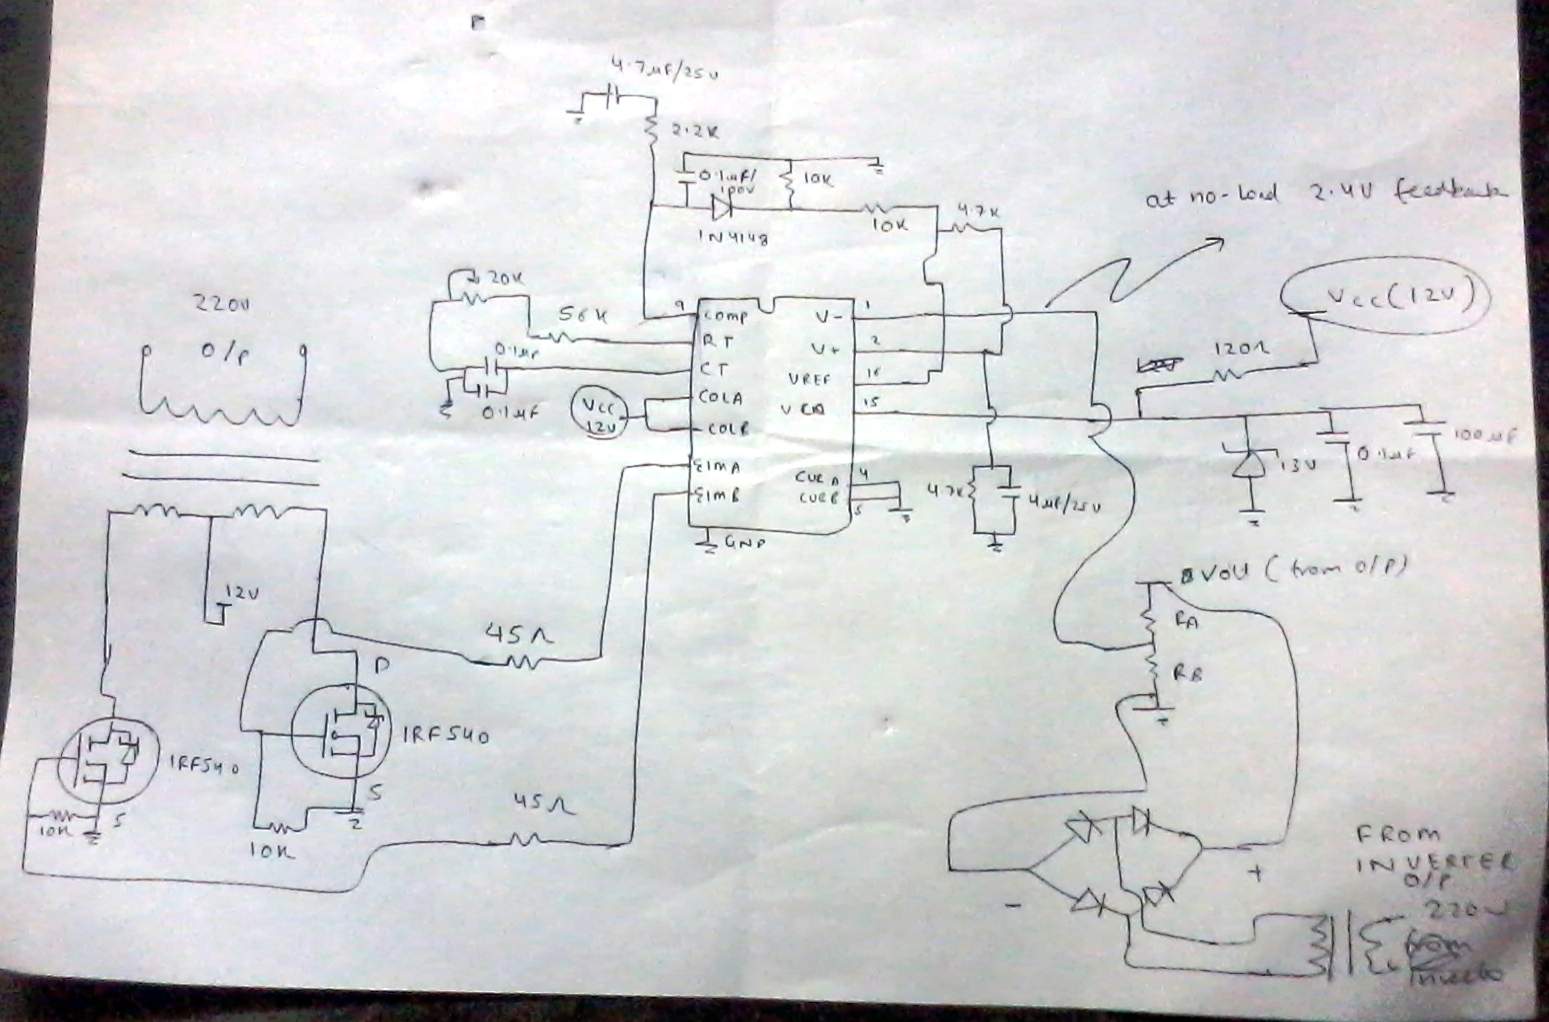 4.7µF/25V
2.2K
0.1µF/
100V
10K
1N4148
10K
4.7K
at no-load 2.4V feedback
VCC(12V)
120Ω
220V
O/P
20K
56K
0.1µF
0.1µF
VCC
12V
9
COMP
RT
CT
COLA
COLB
EIMA
EIMB
GND
V-
V+
VREF
CUR A
CUR B
1
2
16
15
4
5
4.7K
4µF/25V
13V
0.1µF
100µF
12V
45Ω
D
IRF540
S
10K
IRF540
S
10K
45Ω
VOU (from O/P)
RA
RB
+
-
FROM
INVERTER
O/P
220V
from